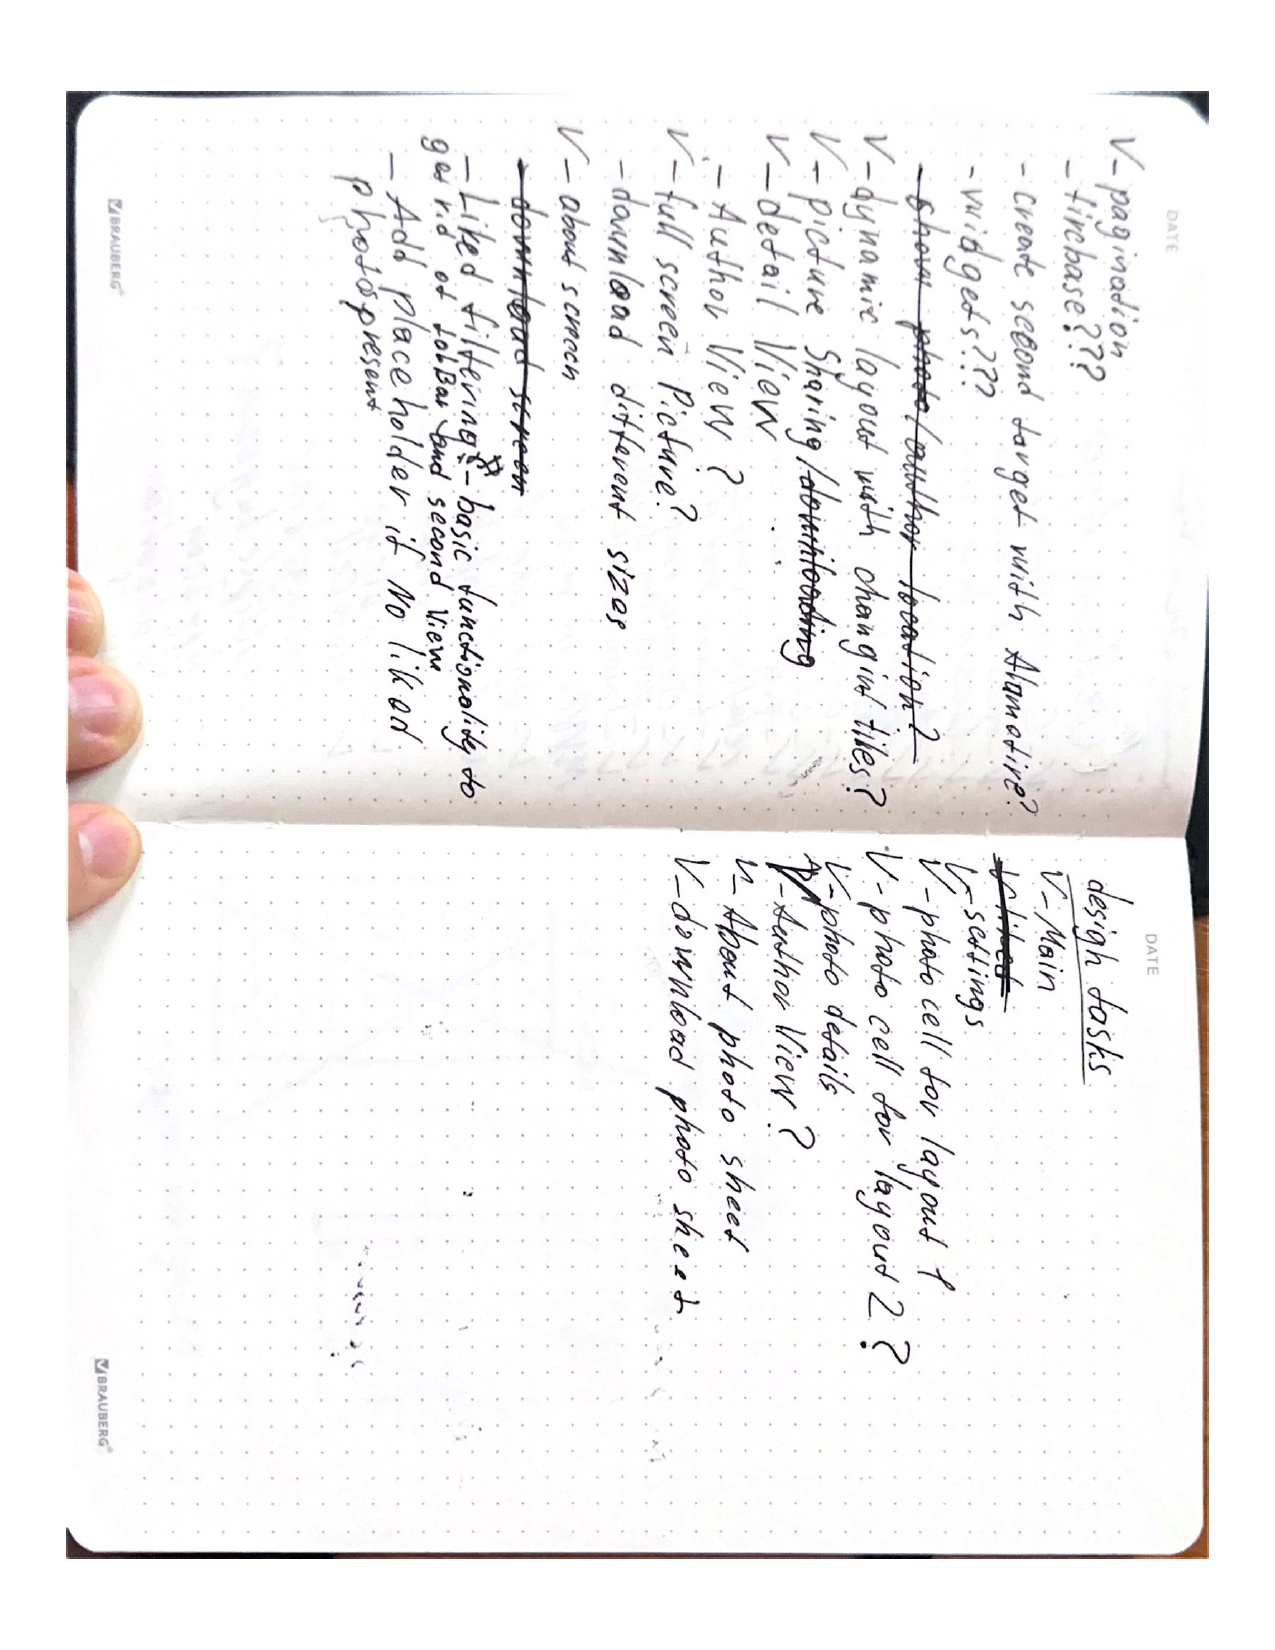 DATE
V - pagination
- firebase???
- create second target with Alamofire?
- widgets???
- show photo/author location?
V - dynamic layout with changint tiles?
V - picture Sharing/downloading
V - detail View
- Author View?
V - full screen Picture?
- download different sizes
V - about screen
- download screen
- Liked filtering - basic functionality to
get rid of tabBar and second View
- Add placeholder if No liked
photos present
VBRAUBERG®
DATE
design tasks
V - Main
V liked
V - settings
V - photo cell for layout 1
V - photo cell for layout 2?
V - photo details
- Author View?
V - About photo sheet
V - download photo sheet
VBRAUBERG®